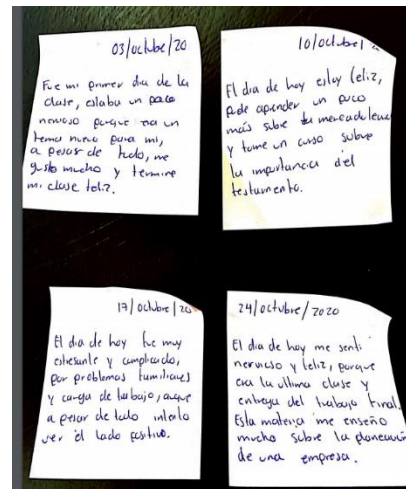 03/octubre/20
Fue mi primer dia de la
clase, estaba un poco
nervoso porque era un
tema nuevo para mi,
a pesar de todo, me
gusto mucho y termine
mi clase feliz.
10/octubre/
El dia de hoy estoy feliz,
pude aprender un poco
más sobre la mercadotecnia
y tome un curso sobre
la importancia del
testamento.
17/octubre/20
El dia de hoy fue muy
estresante y complicado,
por problemas familiares
y carga de trabajo, aunque
a pesar de todo intento
ver el lado positivo.
24/octubre/2020
El dia de hoy me senti
nervioso y feliz, porque
era la ultima clase y
entrega del trabajo final.
Esta materia me enseño
mucho sobre la planeación
de una empresa.